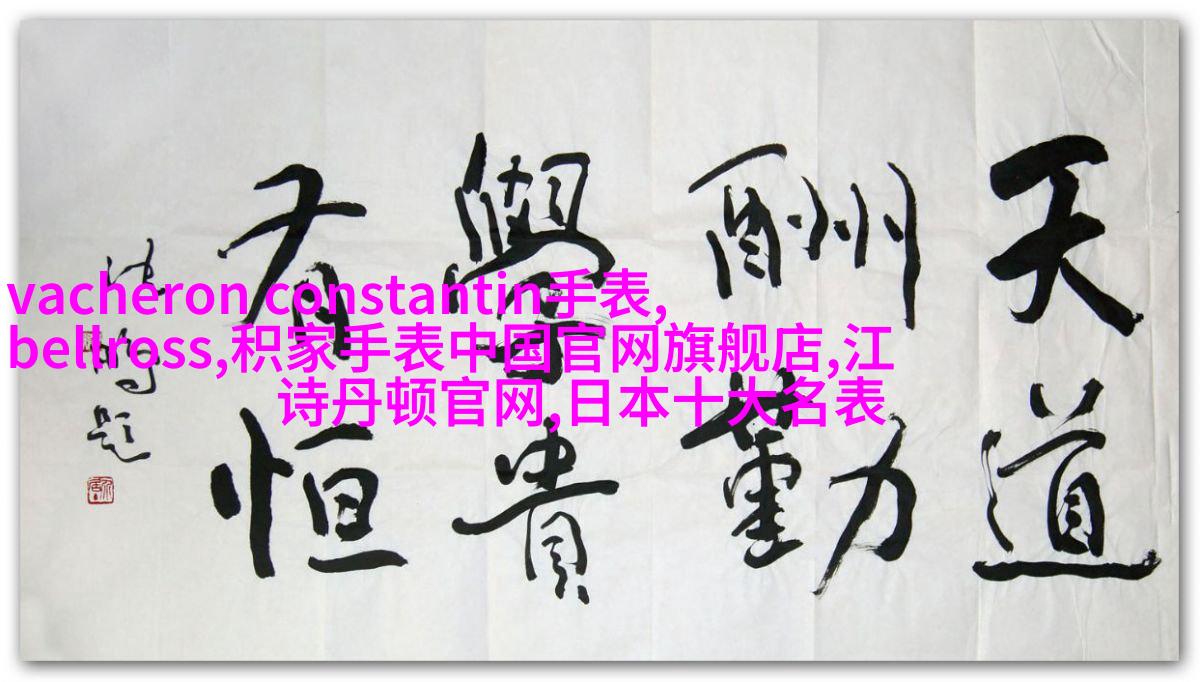 天道
酬勤
學貴
有恒
vacheron constantin手表,
bellross,积家手表中国官网旗舰店,江
诗丹顿官网,日本十大名表